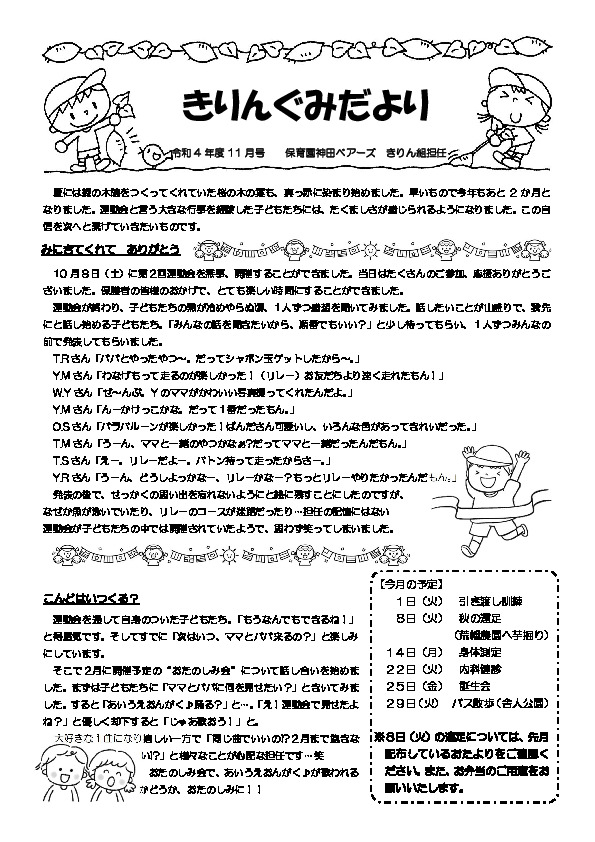 きりんぐみだより
令和4年度11月号　　保育園神田ベアーズ　きりん組担任
夏には緑の木陰をつくってくれていた桜の木の葉も、真っ赤に染まり始めました。早いもので今年もあと2か月と
なりました。運動会と言う大きな行事を経験した子どもたちには、たくましさが感じられるようになりました。この自
信を次へと繋げていきたいものです。
みにきてくれて　ありがとう
10月8日（土）に第2回運動会を無事、開催することができました。当日はたくさんのご参加、応援ありがとうご
ざいました。保護者の皆様のおかげで、とても楽しい時間にすることができました。
運動会が終わり、子どもたちの熱が冷めやらぬ頃、1人ずつ感想を聞いてみました。話したいことが山盛りで、我先
にと話し始める子どもたち。「みんなの話を聞きたいから、順番でもいい？」と少し待ってもらい、1人ずつみんなの
前で発表してもらいました。
T.Rさん「パパとやったやつ～。だってシャボン玉ゲットしたから～。」
Y.Mさん「わなげもって走るのが楽しかった！（リレー）お友だちより速く走れたもん！」
W.Yさん「ぜ～んぶ。Yのママがかわいい写真撮ってくれたんだよ。」
Y.Mさん「んーかけっこかな。だって1番だったもん。」
O.Sさん「パラバルーンが楽しかった！ぱんださん可愛いし、いろんな色があってきれいだった。」
T.Mさん「うーん、ママと一緒のやつかなぁ?だってママと一緒だったんだもん。」
T.Sさん「えー。リレーだよー。バトン持って走ったからさー。」
Y.Rさん「うーん、どうしよっかなー、リレーかなー？もっとリレーやりたかったんだもん。」
発表の後で、せっかくの思い出を忘れないようにと絵に残すことにしたのですが、
なぜか魚が泳いでいたり、リレーのコースが迷路だったり…担任の記憶にはない
運動会が子どもたちの中では開催されていたようで、思わず笑ってしまいました。
こんどはいつくる？
運動会を通して自身のついた子どもたち。「もうなんでもできるね！」
と得意気です。そしてすでに「次はいつ、ママとパパ来るの？」と楽しみ
にしています。
そこで2月に開催予定の“おたのしみ会”について話し合いを始めまし
た。まずは子どもたちに「ママとパパに何を見せたい？」ときいてみま
した。すると「あいうえおんがく♪踊る？」と…。「え！運動会で見せたよ
ね？」と優しく却下すると「じゃあ歌おう！」と。
大好きな1曲になり嬉しい一方で「同じ曲でいいの!?2月まで飽きな
い!?」と様々なことが心配な担任です…笑
おたのしみ会で、あいうえおんがく♪が歌われる
かどうか、おたのしみに！！
【今月の予定】
1日（火）　引き渡し訓練
8日（火）　秋の遠足
（荒幡農園へ芋掘り）
14日（月）　身体測定
22日（火）　内科健診
25日（金）　誕生会
29日（火）　バス散歩（舎人公園）
※8日（火）の遠足については、先月
配布しているおたよりをご確認く
ださい。また、お弁当のご用意をお
願いいたします。